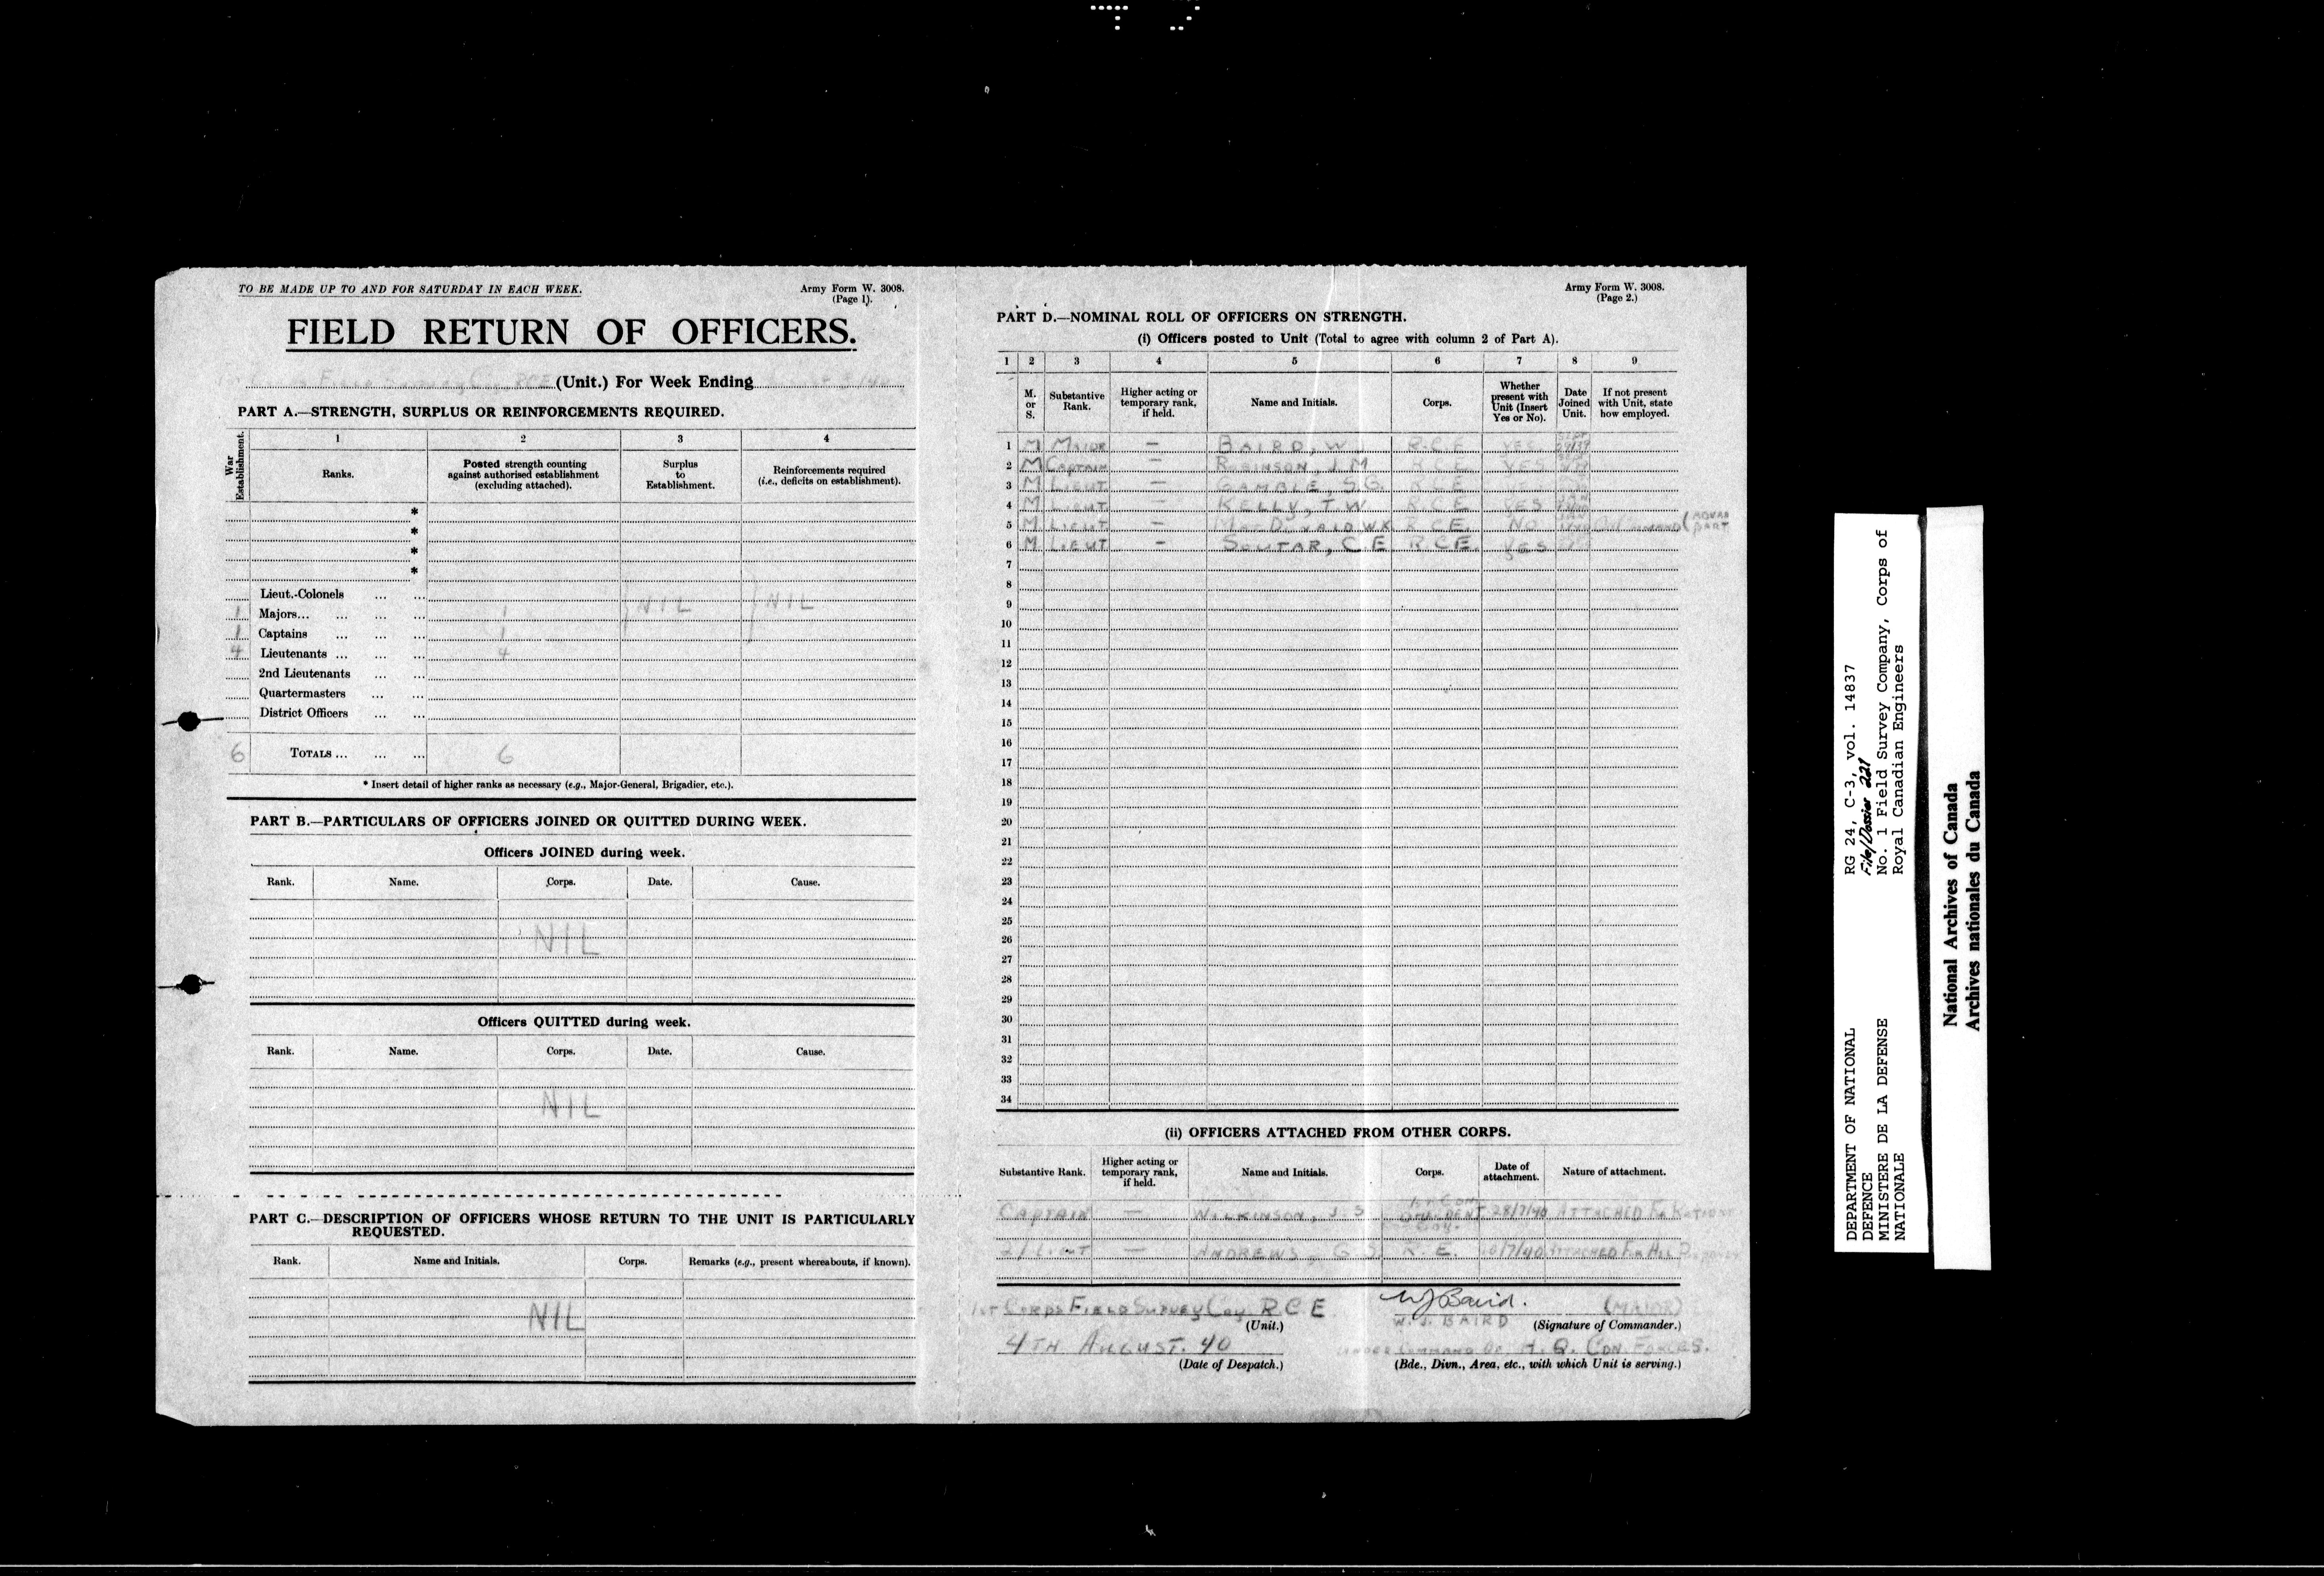 TO BE MADE UP TO AND FOR SATURDAY IN EACH WEEK.
Army Form W. 3008.
(Page 1).
FIELD RETURN OF OFFICERS.
Field Survey Coy RCE (Unit.) For Week Ending
PART A.—STRENGTH, SURPLUS OR REINFORCEMENTS REQUIRED.
War Establishment.
1 2 3 4
Ranks.
Posted strength counting against authorised establishment (excluding attached).
Surplus to Establishment.
Reinforcements required (i.e., deficits on establishment).
*
*
*
*
Lieut.-Colonels ... ...
1 Majors... ... ... ... 1 NIL NIL
1 Captains ... ... ... 1
4 Lieutenants ... ... ... 4
2nd Lieutenants ... ...
Quartermasters ... ...
District Officers ... ...
6 TOTALS ... ... ... 6
* Insert detail of higher ranks as necessary (e.g., Major-General, Brigadier, etc.).
PART B.—PARTICULARS OF OFFICERS JOINED OR QUITTED DURING WEEK.
Officers JOINED during week.
Rank. Name. Corps. Date. Cause.
NIL
Officers QUITTED during week.
Rank. Name. Corps. Date. Cause.
NIL
PART C.—DESCRIPTION OF OFFICERS WHOSE RETURN TO THE UNIT IS PARTICULARLY
REQUESTED.
Rank. Name and Initials. Corps. Remarks (e.g., present whereabouts, if known).
NIL
Army Form W. 3008.
(Page 2.)
PART D.—NOMINAL ROLL OF OFFICERS ON STRENGTH.
(i) Officers posted to Unit (Total to agree with column 2 of Part A).
1 2 3 4 5 6 7 8 9
M. or S.
Substantive Rank.
Higher acting or temporary rank, if held.
Name and Initials.
Corps.
Whether present with Unit (Insert Yes or No).
Date Joined Unit.
If not present with Unit, state how employed.
1 M MAJOR — BAIRD, W. R.C.E YES
2 M CAPTAIN — ROBINSON, J.M R.C.E. YES
3 M LIEUT — GAMBLE, S.G. R.C.E
4 M LIEUT — KELLY, T.W R.C.E YES
5 M LIEUT — MacDONALD WK R.C.E. NO
6 M LIEUT — SOUTAR, C.E R.C.E. YES
7
8
9
10
11
12
13
14
15
16
17
18
19
20
21
22
23
24
25
26
27
28
29
30
31
32
33
34
(ii) OFFICERS ATTACHED FROM OTHER CORPS.
Substantive Rank.
Higher acting or temporary rank, if held.
Name and Initials.
Corps.
Date of attachment.
Nature of attachment.
CAPTAIN — WILKINSON, J.S 28/7/40 ATTACHED FOR RATIONS
2/LIEUT — ANDREWS, G.S R.E. 10/7/40 ATTACHED FOR ALL PURPOSES
1ST CORPS FIELD SURVEY COY. R.C.E
(Unit.)
WJ Baird. (MAJOR)
W.J. BAIRD (Signature of Commander.)
4TH AUGUST. 40
(Date of Despatch.)
UNDER COMMAND OF H.Q. CDN. FORCES.
(Bde., Divn., Area, etc., with which Unit is serving.)
DEPARTMENT OF NATIONAL
DEFENCE
MINISTERE DE LA DEFENSE
NATIONALE
RG 24, C-3, vol. 14837
File/Dossier 221
No. 1 Field Survey Company, Corps of
Royal Canadian Engineers
National Archives of Canada
Archives nationales du Canada